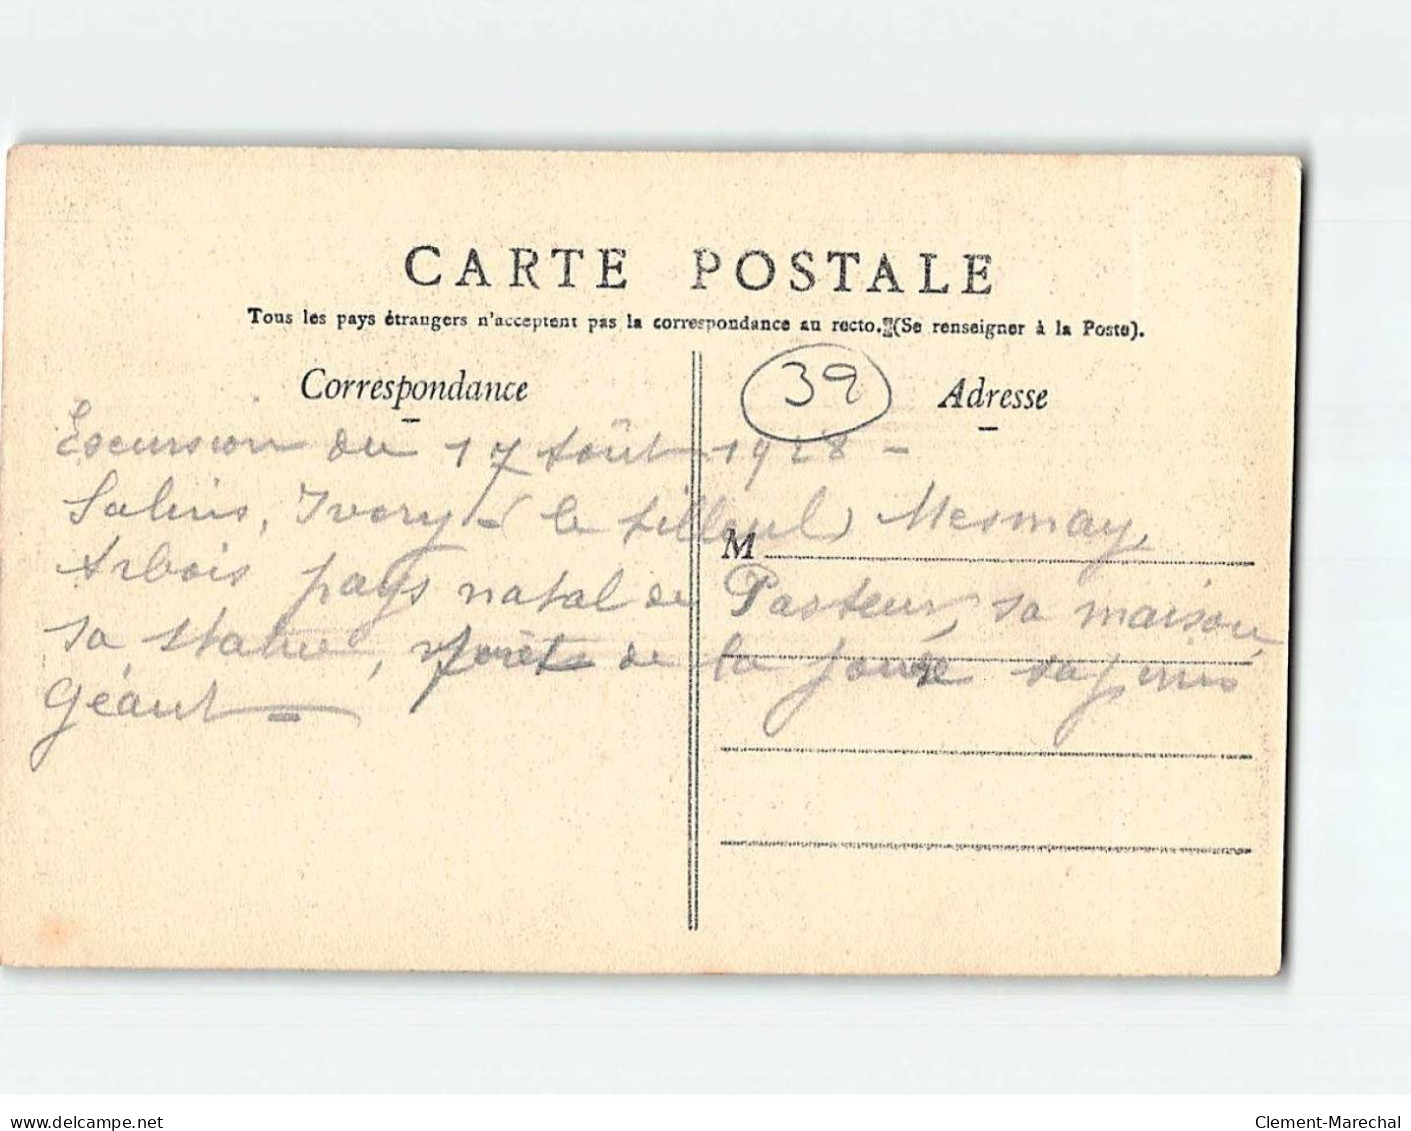 CARTE POSTALE
Tous les pays étrangers n'acceptent pas la correspondance au recto. (Se renseigner à la Poste).
Correspondance
39
Adresse
Excursion du 17 Août 1928 -
Salins, Ivory - (le tilleul) Mesmay,
M
Arbois pays natal de Pasteur, sa maison,
sa statue, forêts de la Joux sapins
géant
delcampe.net
Clement-Marechal